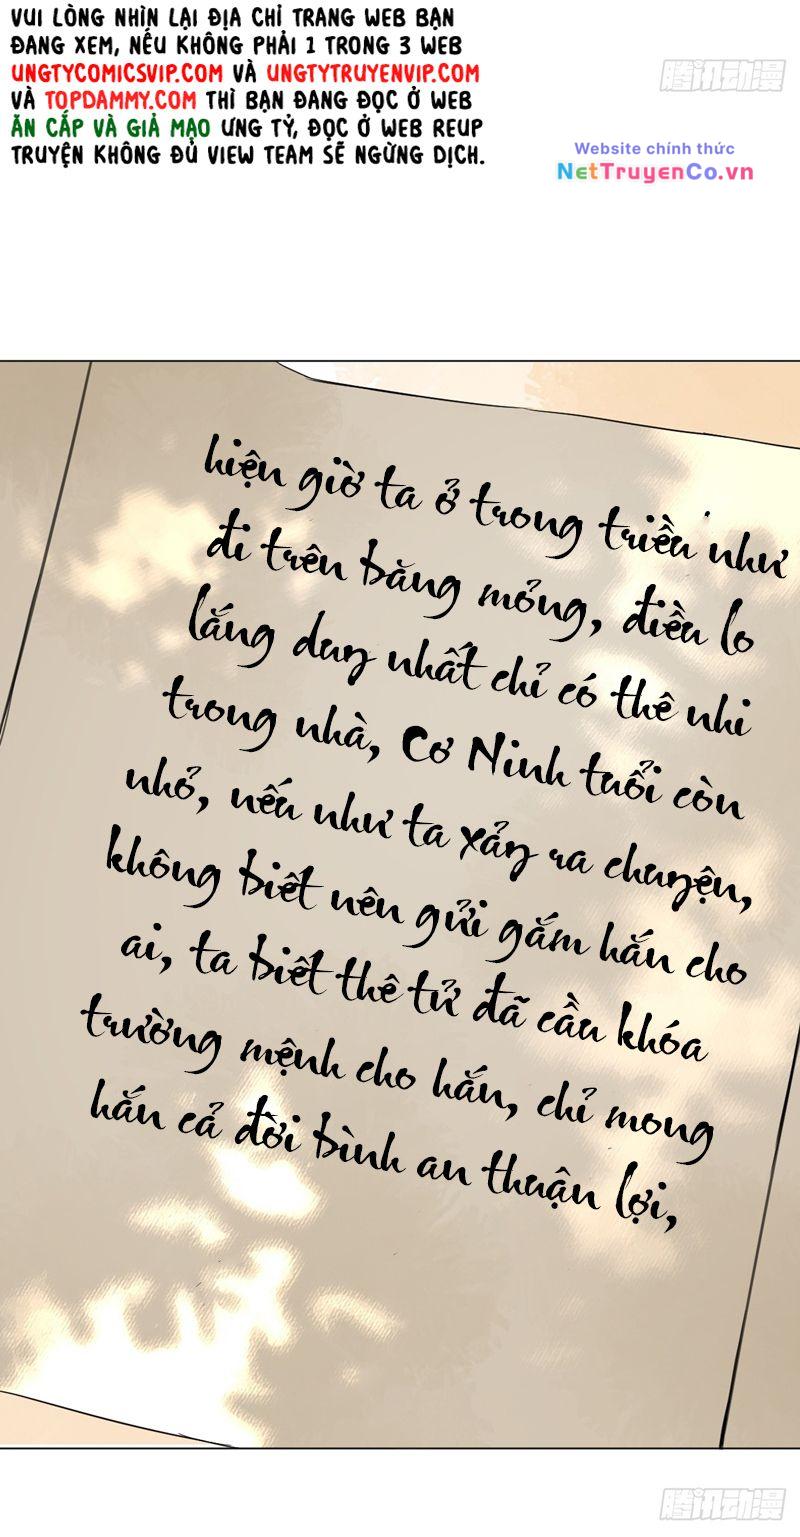 VUI LÒNG NHÌN LẠI ĐỊA CHỈ TRANG WEB BẠN
ĐANG XEM, NẾU KHÔNG PHẢI 1 TRONG 3 WEB
UNGTYCOMICSVIP.COM VÀ UNGTYTRUYENVIP.COM
VÀ TOPDAMMY.COM THÌ BẠN ĐANG ĐỌC Ở WEB
ĂN CẮP VÀ GIẢ MẠO ƯNG TỶ, ĐỌC Ở WEB REUP
TRUYỆN KHÔNG ĐỦ VIEW TEAM SẼ NGỪNG DỊCH.
腾讯动漫
Website chính thức
NetTruyenCo.vn
hiện giờ ta ở trong triều như
đi trên băng mỏng, điều lo
lắng duy nhất chỉ có thê nhi
trong nhà, Cơ Ninh tuổi còn
nhỏ, nếu như ta xảy ra chuyện,
không biết nên gửi gắm hắn cho
ai, ta biết thê tử đã cầu khóa
trường mệnh cho hắn, chỉ mong
hắn cả đời bình an thuận lợi,
腾讯动漫